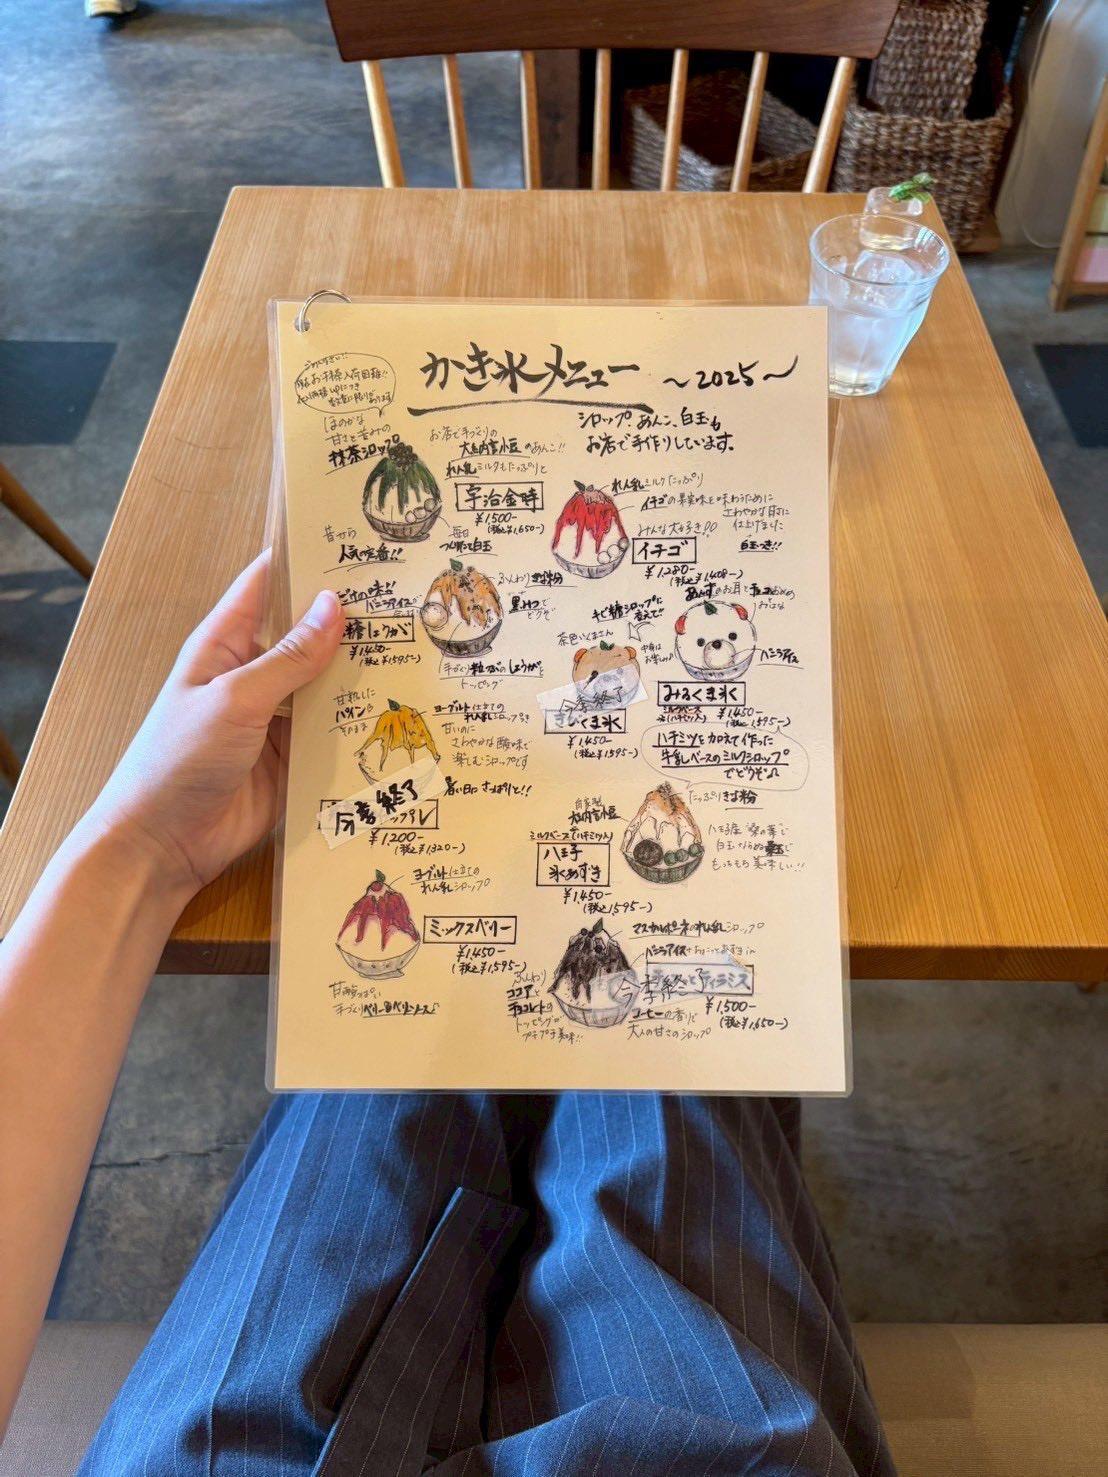 かき氷メニュー ～2025～
シロップ、あんこ、白玉も
お店で手作りしています。
ごめんなさい!!
ほのかな
甘さと苦みの
抹茶シロップ
お店で手づくりの
大納言小豆のあんこ!!
れん乳ミルクもたっぷりと
宇治金時
¥1,500-
(税込¥1,650-)
昔から
人気の定番!!
毎日
つくりたて白玉
れん乳ミルクたっぷり
イチゴの果実味を味わうために
さわやかな甘さに
仕上げました
みんな大好き!!
イチゴ
白玉つき!!
¥1,280-
(税込¥1,408-)
バニラアイス
ふんわりきな粉
黒みつで
どうぞ
糖しょうが
¥1,450-
(税込¥1,595-)
手づくり粒つぶのしょうがと
トッピング
キビ糖シロップに
変えて!!
茶色いくまさん
中身は
お楽しみ♪
今季終了
きびくま氷
¥1,450-
(税込¥1,595-)
あんずのお耳と
バニラアイス
みるくま氷
ミルクベース
¥1,450-
(税込¥1,595-)
ハチミツを加えて作った
牛乳ベースのミルクシロップ
でどうぞ♪
甘熟した
パイン
そのまま
ヨーグルト仕立ての
れん乳シロップつき
甘いのに
さわやかな酸味で
楽しむシロップです
暑い日にさっぱりと!!
今季終了
ップル
¥1,200-
(税込¥1,320-)
自家製
大納言小豆
ミルクベース(ハチミツ入)
八王子
氷あずき
¥1,450-
(税込¥1,595-)
たっぷりきな粉
八王子産"桑の葉"で
もっちもち美味しい!!
ヨーグルト仕立ての
れん乳シロップ
ミックスベリー
¥1,450-
(税込¥1,595-)
甘酸っぱい
手づくりベリーベリーソース♪
マスカルポーネのれん乳シロップ
今季終了
ティラミス
¥1,500-
(税込¥1,650-)
ふんわり
ココアと
チョコレートの
トッピングが
プチプチ美味!!
コーヒーの香りで
大人の甘さのシロップ